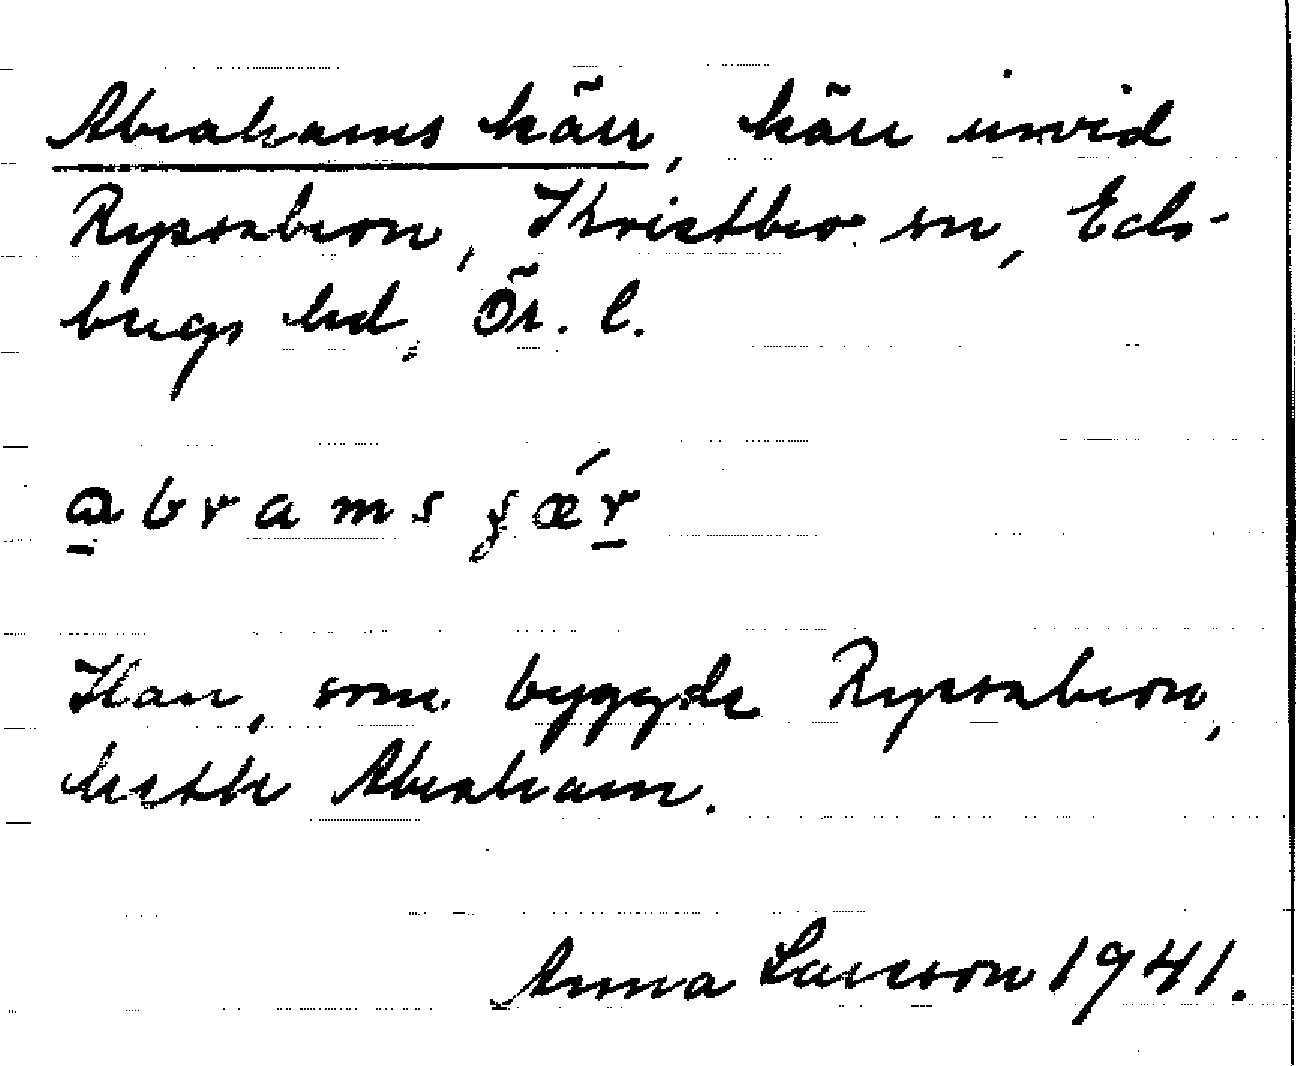 Abrahams kärr, kärr invid
Ryssabron, Kristbro sn, Eds-
bergs hd, Ör. l.
abramsʂǽr
Han, som byggde Ryssabron,
hette Abraham.
Anna Larsson 1941.